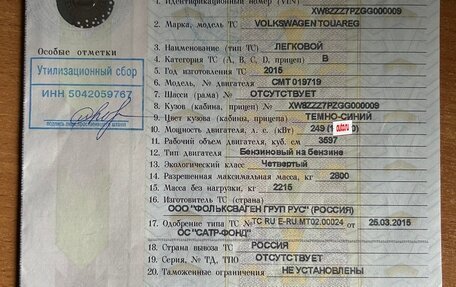 1. Идентификационный номер (VIN) XW8ZZZ7PZGG000009
2. Марка, модель ТС VOLKSWAGEN TOUAREG
3. Наименование (тип ТС) ЛЕГКОВОЙ
4. Категория ТС (А, В, С, D, прицеп) B
5. Год изготовления ТС 2015
6. Модель, № двигателя CMT 019719
7. Шасси (рама) № ОТСУТСТВУЕТ
8. Кузов (кабина, прицеп) № XW8ZZZ7PZGG000009
9. Цвет кузова (кабины, прицепа) ТЕМНО-СИНИЙ
10. Мощность двигателя, л. с. (кВт) 249
11. Рабочий объем двигателя, куб. см 3597
12. Тип двигателя Бензиновый на бензине
13. Экологический класс Четвертый
14. Разрешенная максимальная масса, кг 2800
15. Масса без нагрузки, кг 2215
16. Изготовитель ТС (страна)
ООО "ФОЛЬКСВАГЕН ГРУП РУС" (РОССИЯ)
17. Одобрение типа ТС № ТС RU E-RU.MT02.00024 от 25.03.2015
ОС "САТР-ФОНД"
18. Страна вывоза ТС РОССИЯ
19. Серия, № ТД, ТПО ОТСУТСТВУЕТ
20. Таможенные ограничения НЕ УСТАНОВЛЕНЫ
Особые отметки
Утилизационный сбор
ИНН 5042059767